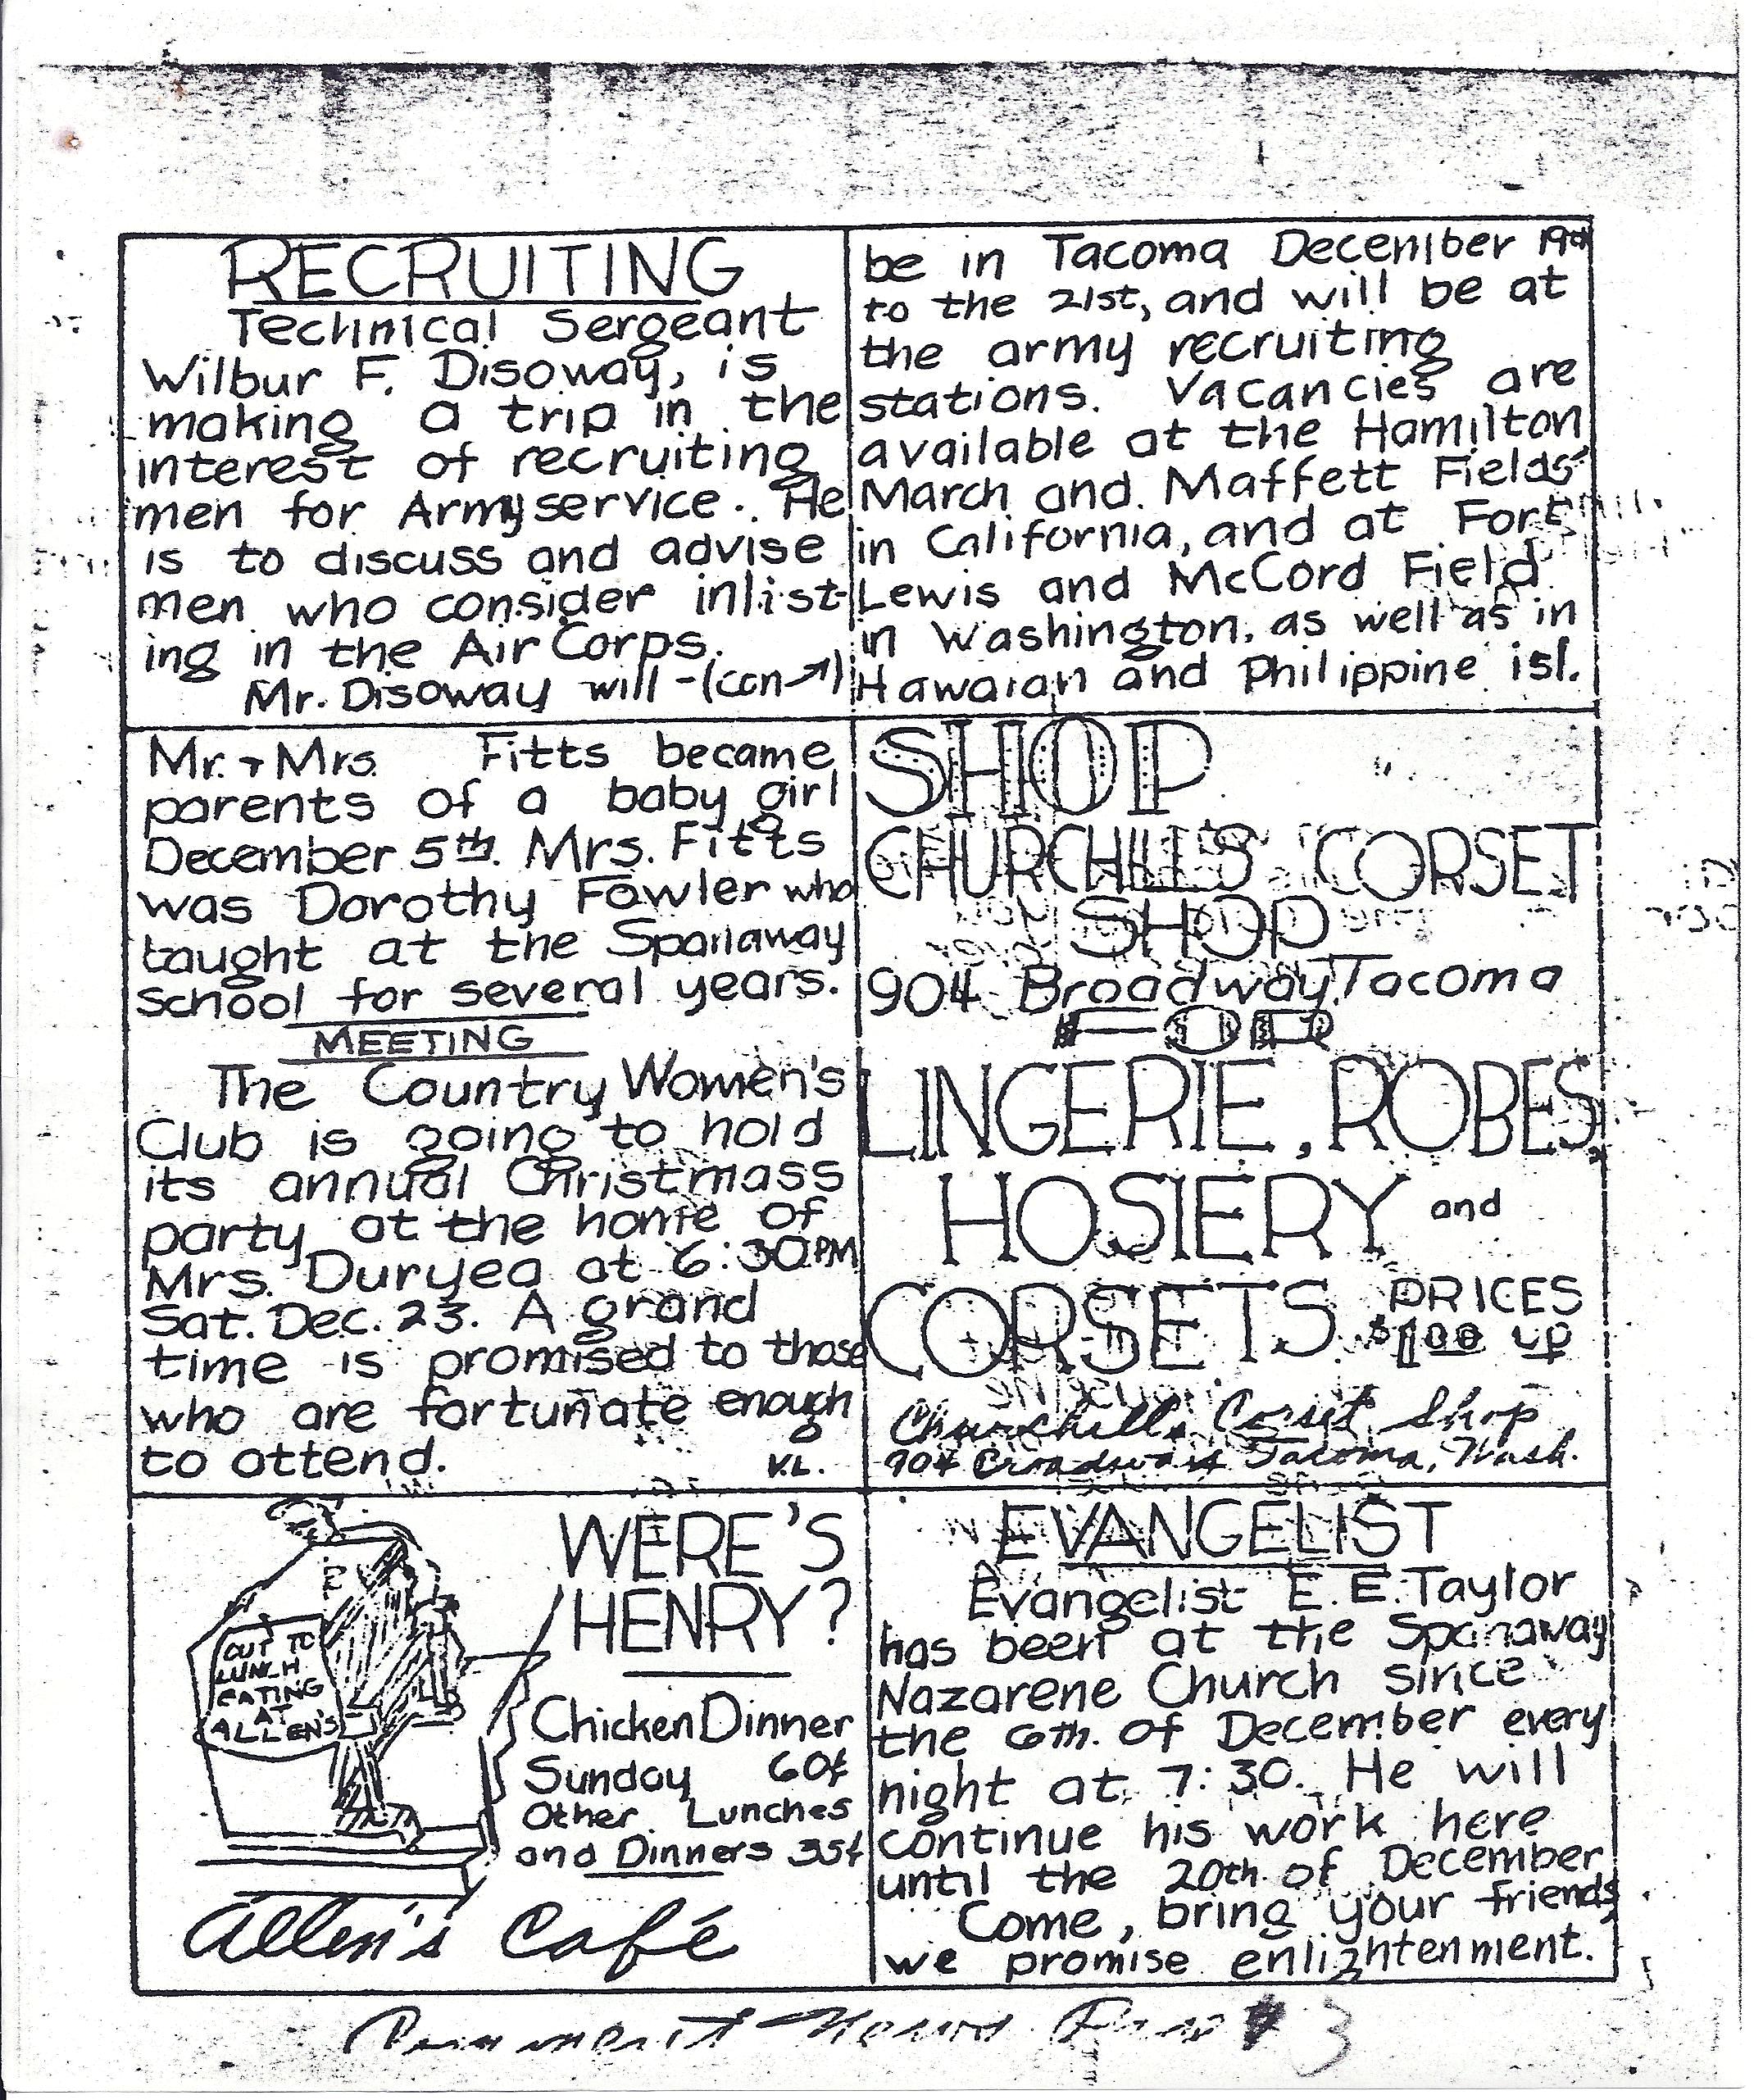 RECRUITING
Technical Sergeant
Wilbur F. Disoway, is
making a trip in the
interest of recruiting
men for Army service. He
is to discuss and advise
men who consider inlist-
ing in the Air Corps.
Mr. Disoway will -(con→)
be in Tacoma December 19th
to the 21st, and will be at
the army recruiting
stations. Vacancies are
available at the Hamilton
March and Maffett Fields
in California, and at Fort
Lewis and McCord Field
in Washington, as well as in
Hawaian and Philippine isl.
Mr. + Mrs. Fitts became
parents of a baby girl
December 5th. Mrs. Fitts
was Dorothy Fowler who
taught at the Spanaway
school for several years.
MEETING
The Country Women's
Club is going to hold
its annual Christmass
party at the home of
Mrs. Duryea at 6:30 PM
Sat. Dec. 23. A grand
time is promised to those
who are fortunate enough
to attend. V.L.
SHOP
CHURCHILL'S CORSET
SHOP
904 Broadway, Tacoma
FOR
LINGERIE, ROBES,
HOSIERY and
CORSETS. PRICES
$1.00 up
Churchills Corset Shop
904 Broadway Tacoma, Wash.
WERE'S
HENRY?
OUT TO
LUNCH
EATING
AT
ALLEN'S
Chicken Dinner
Sunday 60¢
Other Lunches
and Dinners 35¢
Allen's Café
EVANGELIST
Evangelist E. E. Taylor
has been at the Spanaway
Nazarene Church since
the 6th. of December every
night at 7:30. He will
continue his work here
until the 20th of December
Come, bring your friends,
we promise enlightenment.
# 3